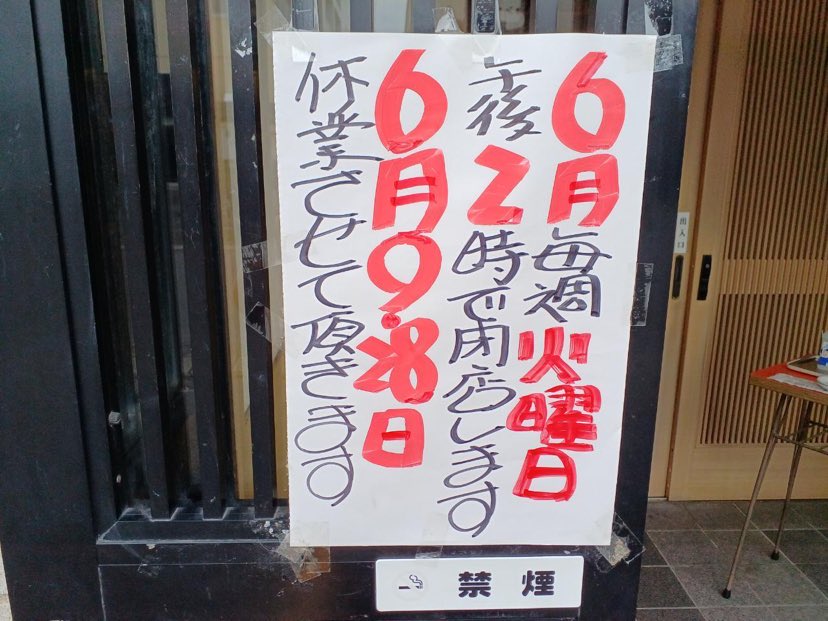 6月毎週火曜日
午後2時で閉店します
6月9.28日
休業させて頂きます
出入口
禁煙